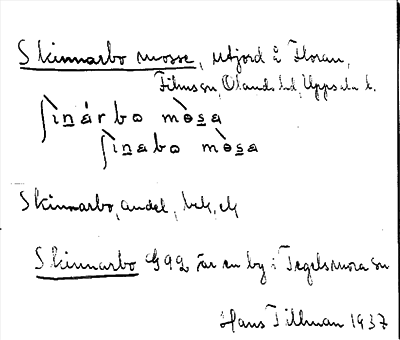 Skinnarbo mosse, utjord å Floran,
Films sn, Olands hd, Uppsala l.
ʃìnárbo mòsa
ʃìnabo mòsa
Skinnarbo, andel,
Skinnarbo är en by i Tegelsmora sn
Hans Tillman 1937